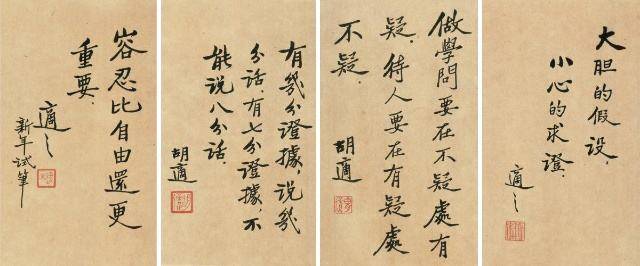 大胆的假设.
小心的求證.
適之
做學問要在不疑處有
疑.待人要在有疑處
不疑.
胡適
有幾分證據,说幾
分话.有七分證據,不
能说八分话.
胡適
容忍比自由還更
重要.
適之
新年试筆